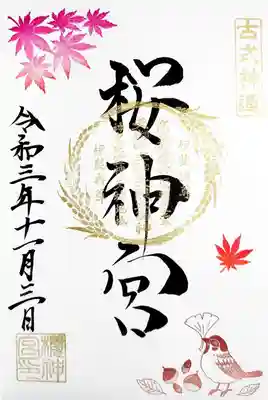 古式神道
桜神宮
令和三年十一月三日
櫻神宮印